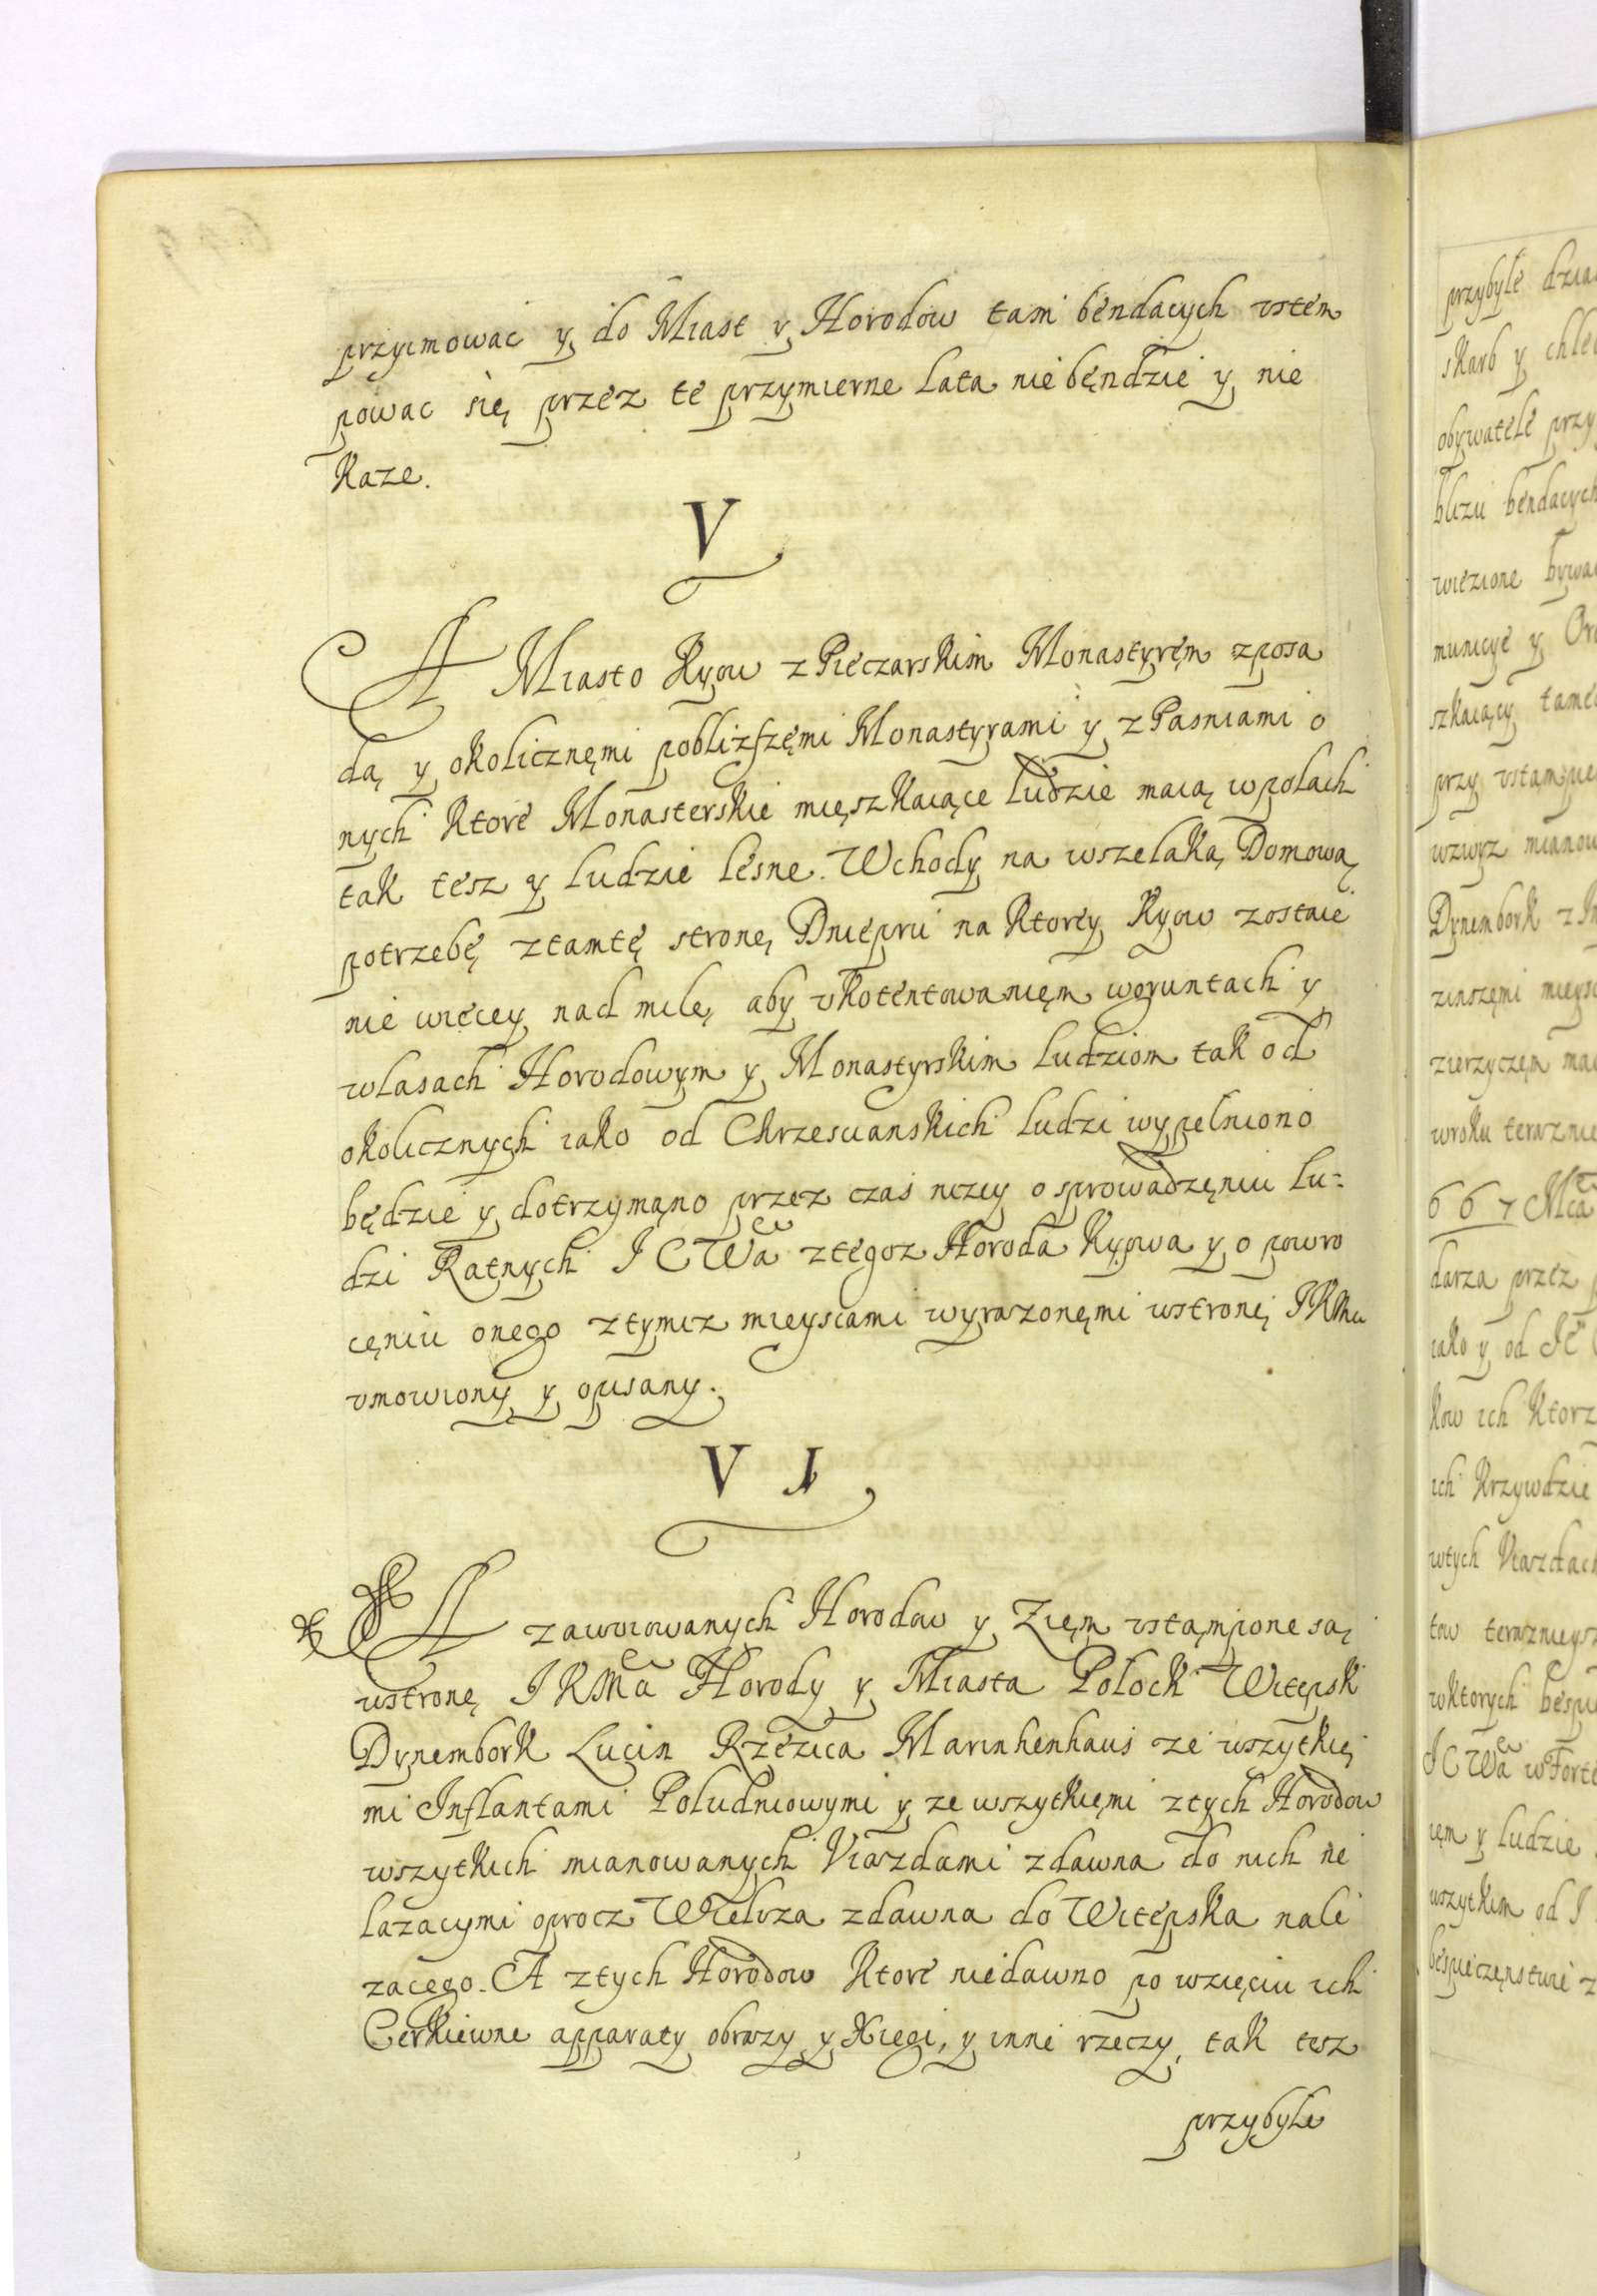 przyimowac y do Miast y Horodow tam bendacych vstem
powac się przez te przymierne Lata nie bęndzie y nie
Kaze.
V
A Miasto Kyow z Pieczarskim Monastyrem zposa
dą y okolicznęmi pobliższęmi Monastyrami y z Pasniami o
nych Ktore Monasterskie mięszkaiące ludzie maią wpolach
tak tesz y ludzie lesne. Wchody na wszelaką Domową
potrzebę ztamtę stronę Dniepru na Ktorey Kyow zostaie
nie wiecey nad milę aby vkotentowanięm wgruntach y
wlasach Horodowym y Monastyrskim ludziom tak od
okolicznych iako od Chrzescianskich ludzi wypelniono
będzie y dotrzymąno przez czas nizey o sprowadzęniu lu-
dzi Ratnych J C Wa ztegoz Horoda Kyiowa y o powro
cęniu onego ztymiz mieyscami wyrazonęmi wstronę JKMu
vmowiony y opisany.
VI
A zawoiowanych Horodow y Zięm vstąmpione są
wstronę J K Ma Horody y Miasta Polock Witepsk
Dynembork Lucin Rzezica Marinhenhaus ze wszytkię
mi Inflantami Poludniowymi y ze wszytkięmi ztych Horodow
wszytkich mianowanych Viazdami zdawna do nich ne
lazacymi oprocz Wieliza zdawna do Witepska nale
zacego. A ztych Horodow Ktore niedawno po wzięciu ich
Cerkiewne apparaty obrazy y Xiegi, y inne rzeczy, tak tesz
przybyle
przybyle
skarb y
obywatele
blizu bendacych
wiezione
municye y
szkaiący
przy
wzwyz
Dynembork
zinszęmi
zierzyczęm
wroku
667
darza przez
iako y od
Kow ich
ich Krzywdzie
wtych
tow
wktorych
J C Wa
ięm y ludzie
wszytkim od J